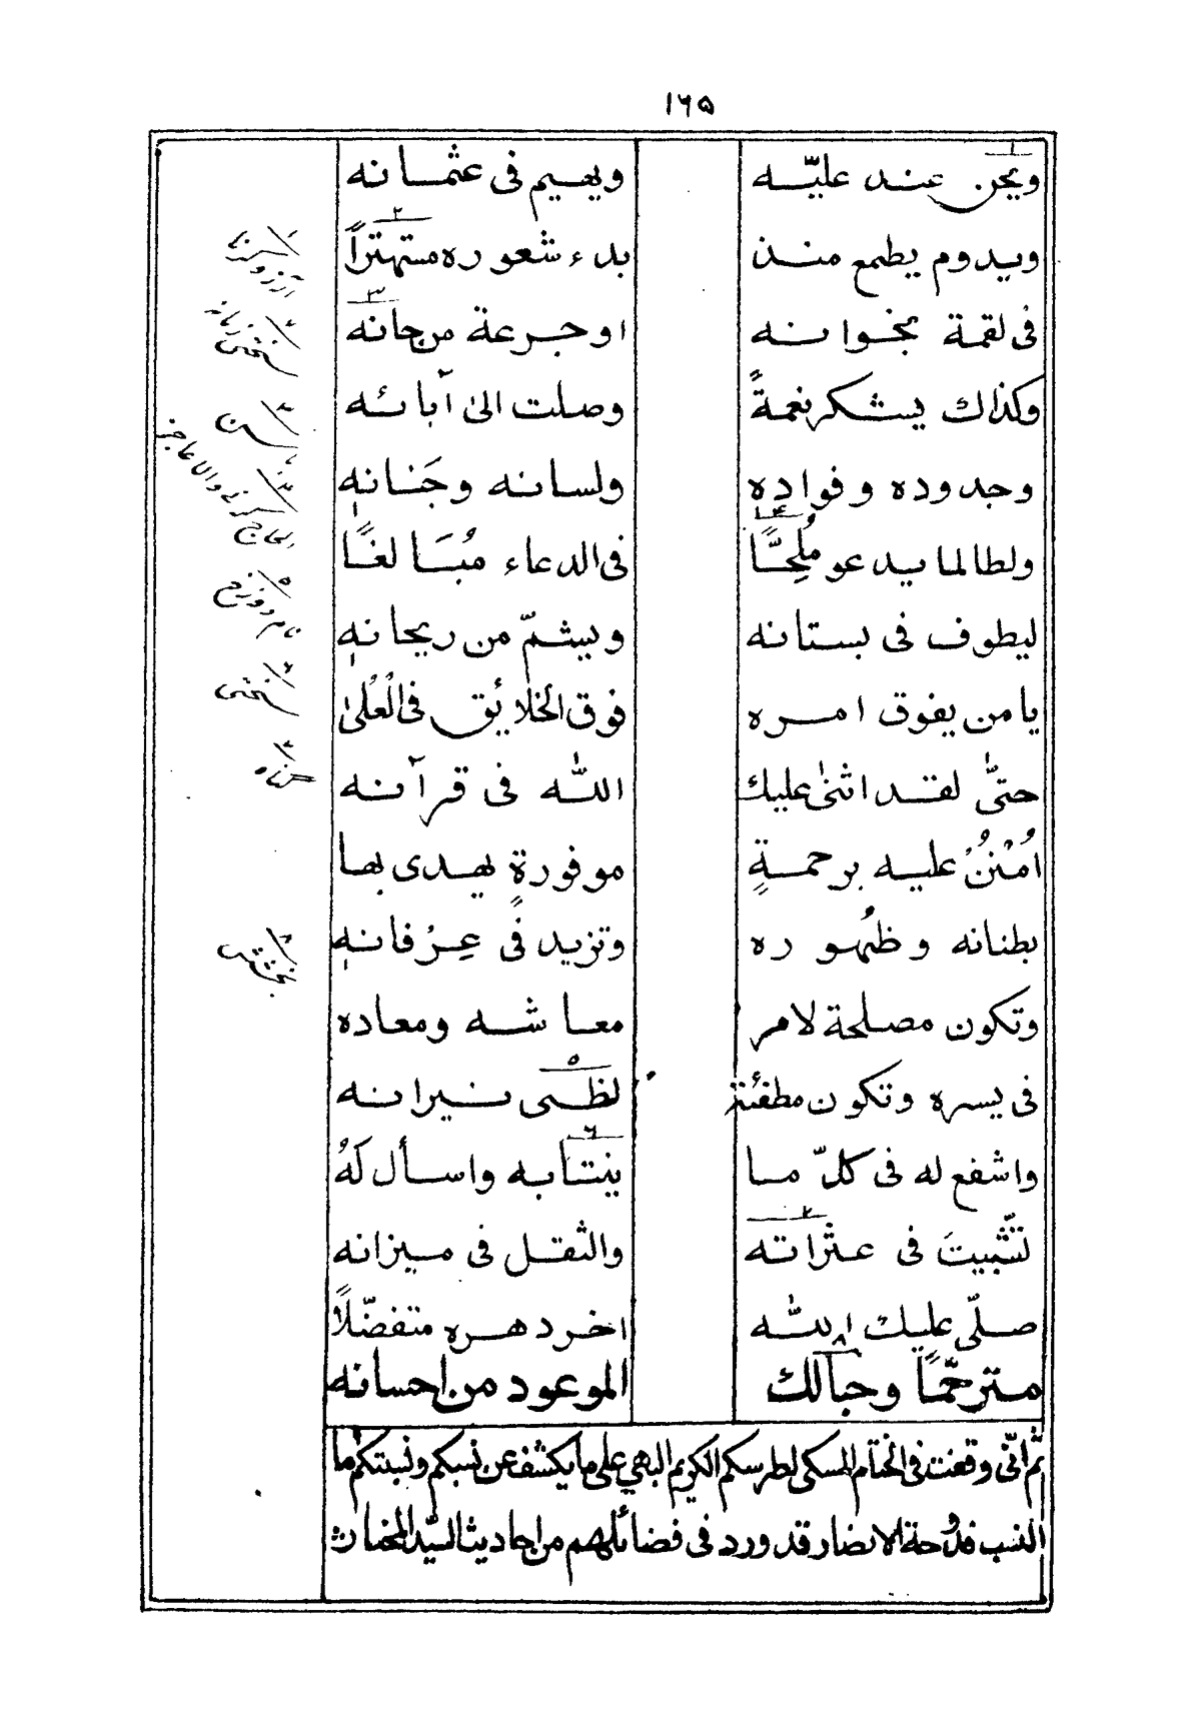 ١٦٥
ويحن عند عليّه ويهيم فى عثمانه
ويدوم يطمع منذ بدء شعوره مستهتراً
فى لقمة بخوانه او جرعة من جانه
وكذاك يشكر نعمةً وصلت الىٰ آبائه
وجدوده وفواده ولسانه وجَنانهٖ
ولطالما يدعو مُلِحًّا فى الدعاء مُبَالغًا
ليطوف فى بستانه ويشمّ من ريحانهٖ
يا من يفوق امره فوق الخلايق فى الْعُلىٰ
حتّٰى لقد اثنىٰ عليك اللّٰه فى قرآنه
اُمْنُنْ عليه برحمةٍ موفورةٍ يهدى بها
بطنانه وظُهوره وتزيد فى عِرْفانهٖ
وتكون مصلحة لامر معاشه ومعاده
فى يسره وتكون مطفئة لظى نيرانه
واشفع له فى كلّ ما ينتابه واسأل لَهُ
تثّبيتَ فى عثراته والثقل فى ميزانه
صلّى عليك اللّٰه اخر دهره متفضّلاً
مترحّمًا وحبالك الموعود من احسانه
ثم انّى وقعت فى الختام المسكى لطرسكم الكريم البهي على ما يكشف عن نسبكم ونسبتكم ما
النسب فدوحة الانصار قد ورد فى فضائلهم من احاديث السيّد المختار
٢ سختى زمانه
٦ سختى
٧ گناه
٨ بخشش